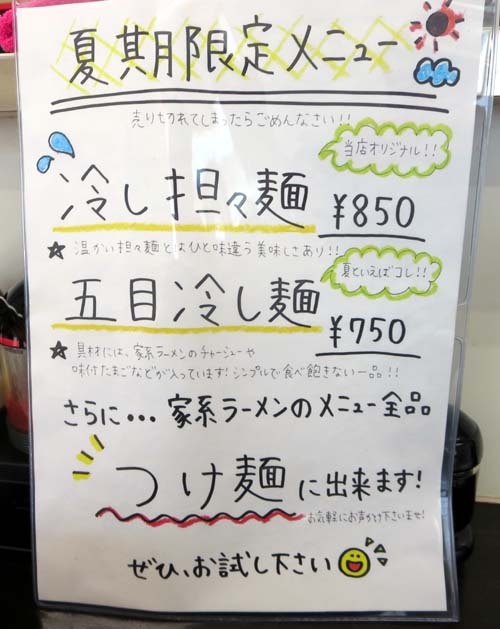 夏期限定メニュー
売り切れてしまったらごめんなさい!!
当店オリジナル!!
冷し担々麺 ¥850
★ 温かい担々麺とはひと味違う美味しさあり!!
夏といえばコレ!!
五目冷し麺 ¥750
★ 具材には、家系ラーメンのチャーシューや
味付たまごなどが入っています!シンプルで食べ飽きない一品!!
さらに・・・家系ラーメンのメニュー全品
つけ麺に出来ます!
お気軽にお声かけ下さいませ!
ぜひ、お試し下さい